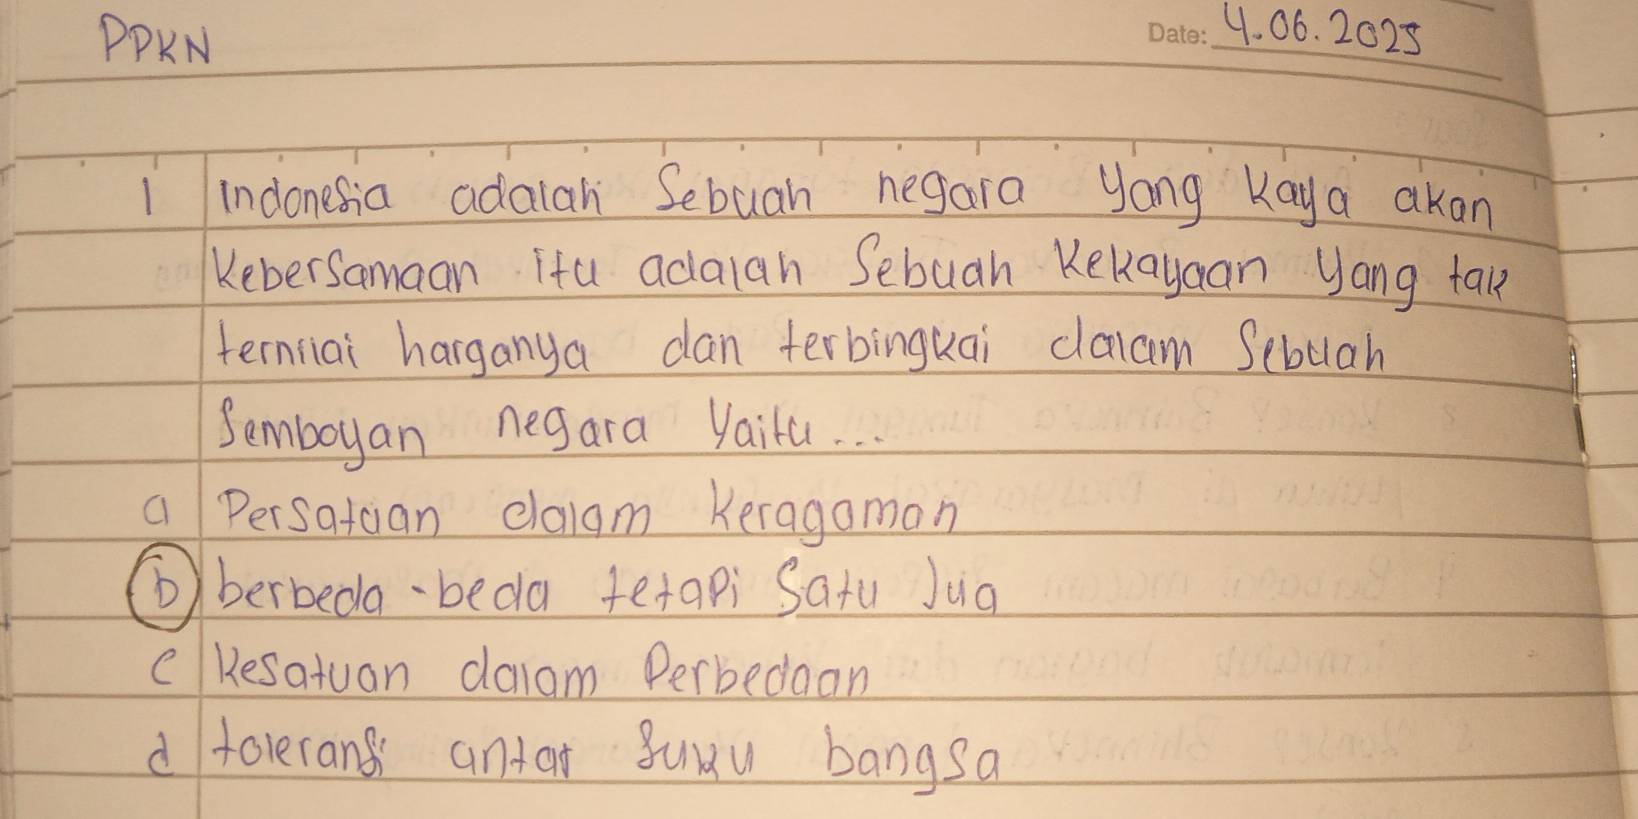 PPKN
Date: 4.06.2025
1 Indonesia adalah Sebuah negara yang kaya akan
kebersamaan itu adalah Sebuah kekayaan yang tak
ternilai harganya dan terbingkai dalam Sebuah
Semboyan negara yaitu...
a Persatuan dalam keragaman
b berbeda-beda tetapi Satu Jua
c kesatuan dalam Perbedaan
d toleransi antar Suku bangsa